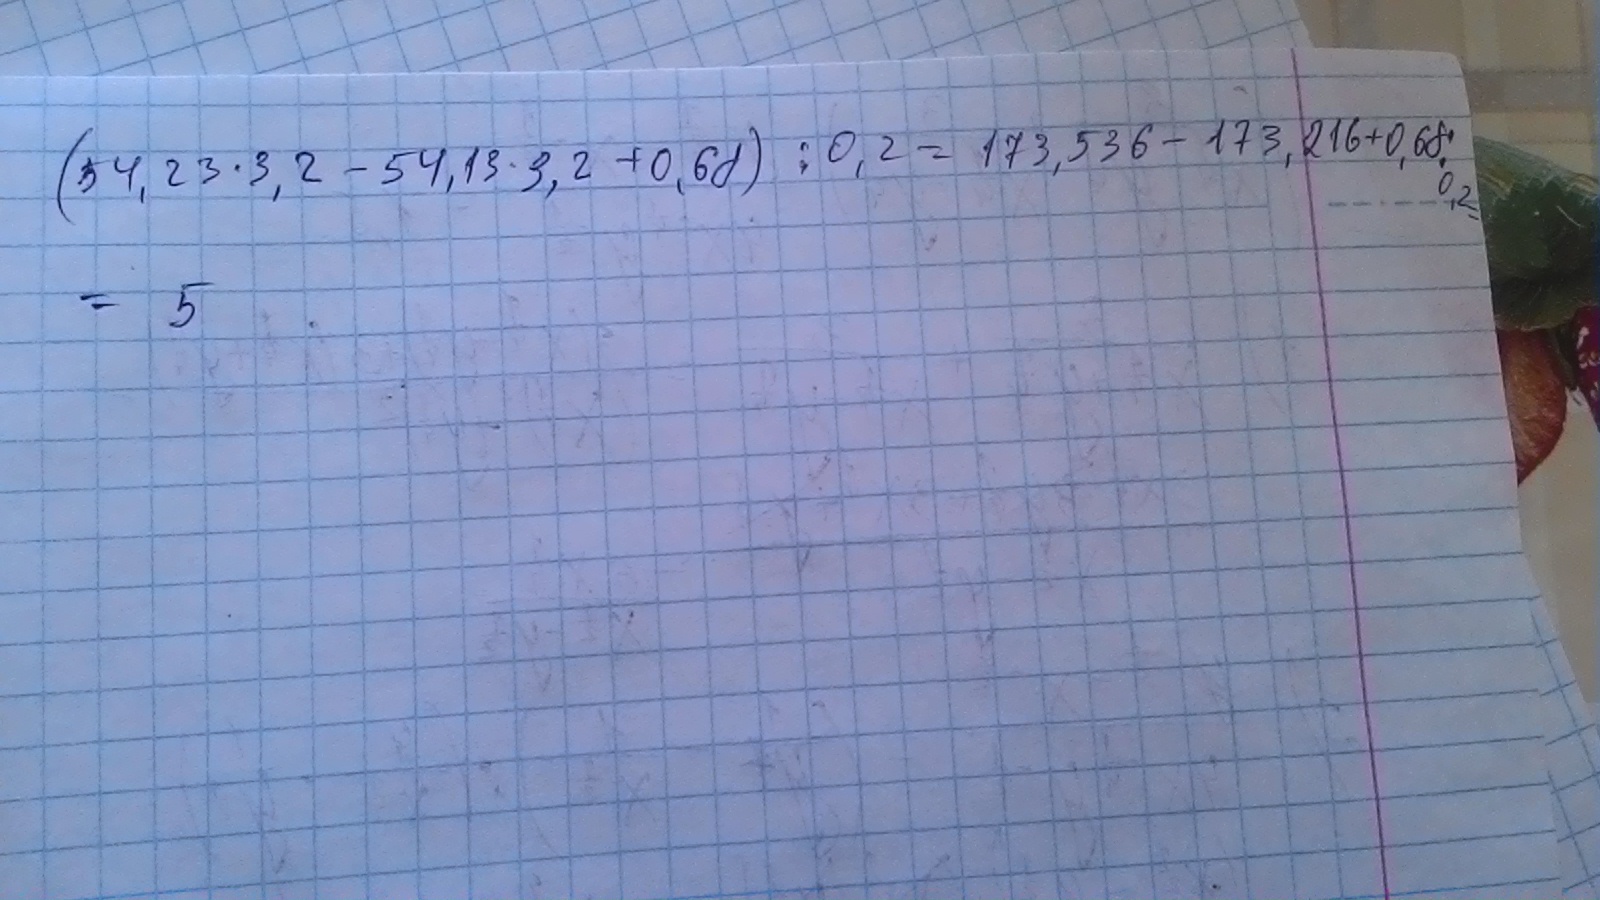 (54,23·3,2 - 54,13·3,2 + 0,68) : 0,2 = 173,536 - 173,216 + 0,68:
0,2=
= 5